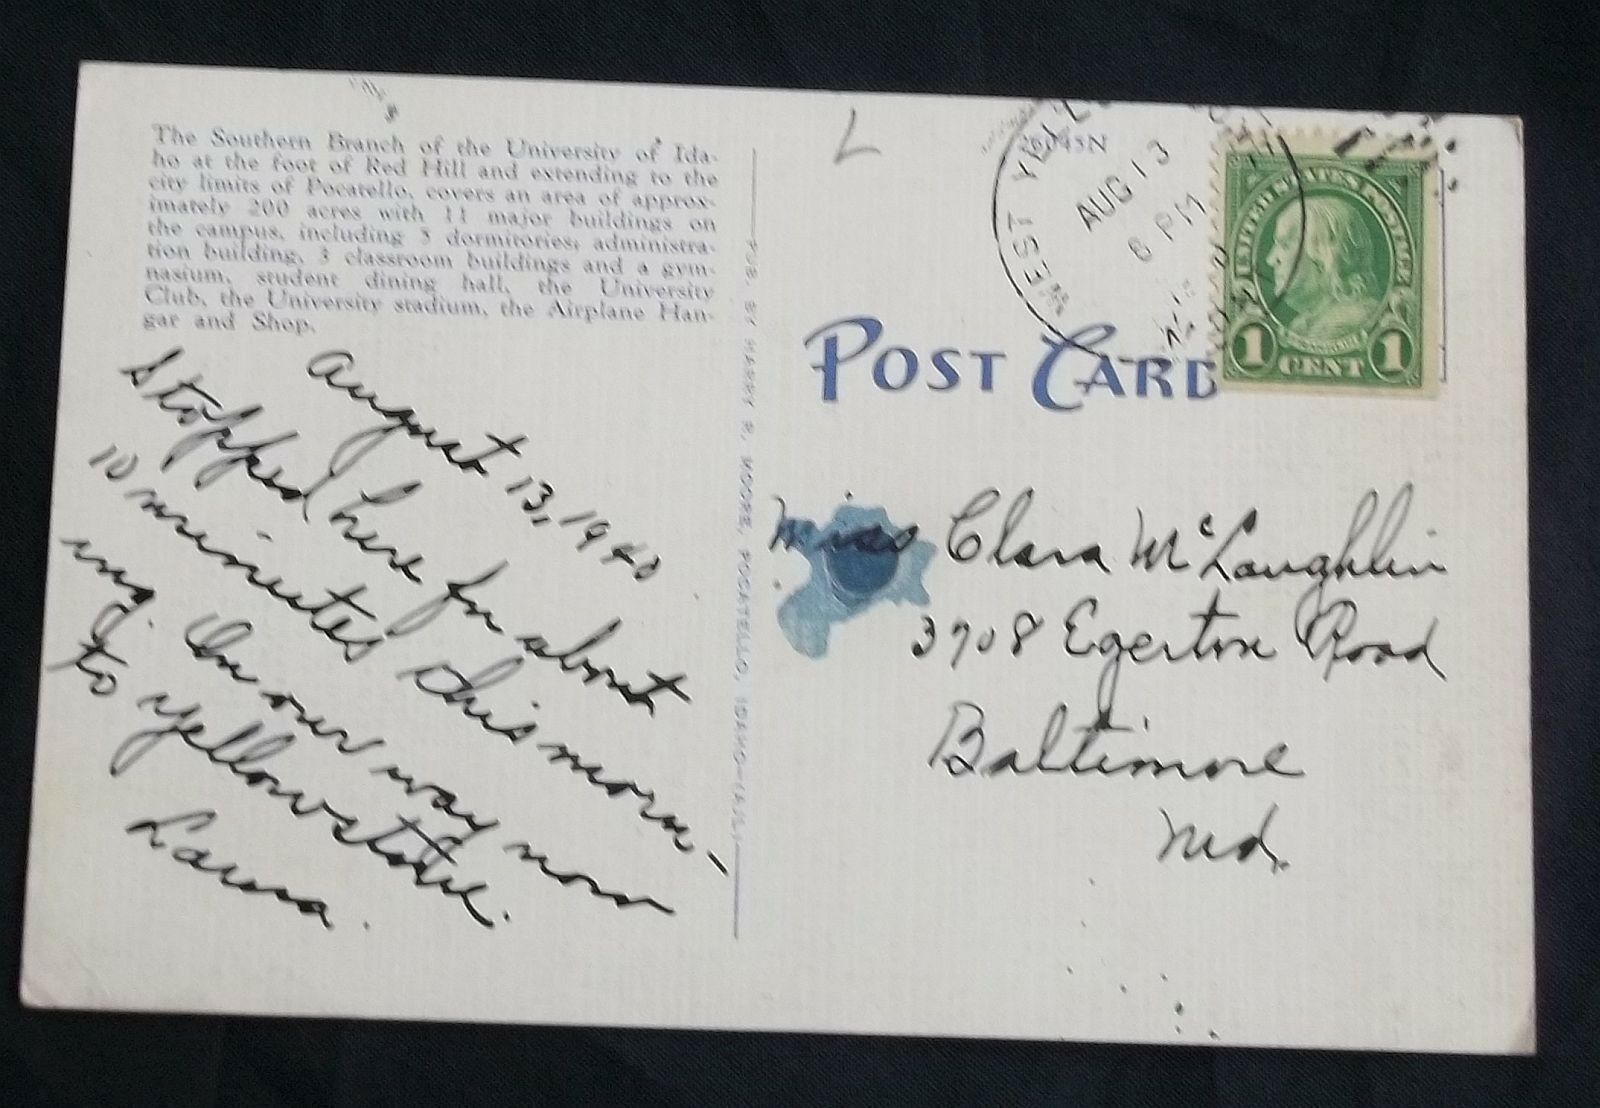 The Southern Branch of the University of Ida-
ho at the foot of Red Hill and extending to the
city limits of Pocatello, covers an area of approx-
imately 200 acres with 11 major buildings on
the campus, including 3 dormitories; administra-
tion building, 3 classroom buildings and a gym-
nasium, student dining hall, the University
Club, the University stadium, the Airplane Han-
gar and Shop.
August 13, 1940
Stopped here for about
10 minutes this morn-
ing. On our way now
to Yellowstone.
Laura.
PUB. BY HARRY R. MOORE, POCATELLO, IDAHO
L
WEST
AUG 13
6 PM
UNITED STATES POSTAGE
FRANKLIN
1 CENT 1
POST CARD
Miss Clara McLaughlin
3708 Egerton Road
Baltimore
Md.